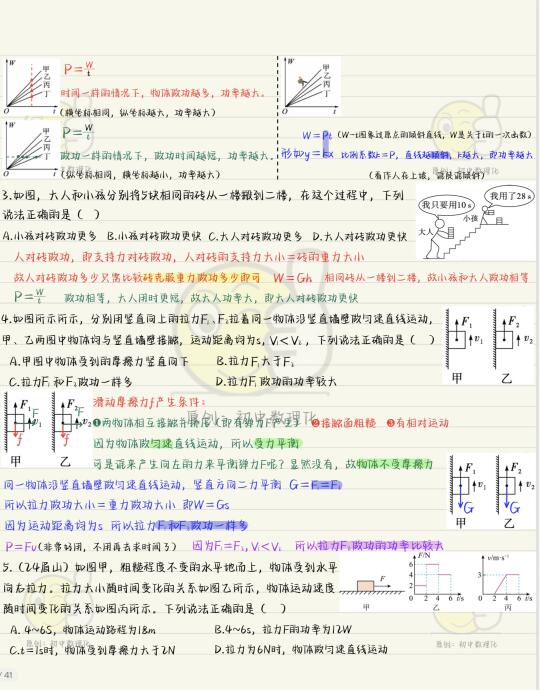 W 甲 乙 丙 丁 O t
P=W/t
时间一样的情况下，物体做功越多，功率越大。
(横坐标相同，纵坐标越大，功率越大)
W 甲 乙 丙 丁 O t
P=W/t
做功一样的情况下，做功时间越短，功率越大。
(纵坐标相同，横坐标越小，功率越大)
W 甲 乙 丙 丁 O t
W=Pt (W-t图象过原点的倾斜直线，W是关于t的一次函数)
形如y=kx 比例系数k=P，直线越倾斜，k越大，即功率越大
(看作人在上坡，谁技高倾斜)
3.如图，大人和小孩分别将5块相同的砖从一楼搬到二楼，在这个过程中，下列
说法正确的是（ ）
我只要用10 s
我用了28 s
小孩
大人
A.小孩对砖做功更多 B.小孩对砖做功更快 C.大人对砖做功更多 D.大人对砖做功更快
人对砖做功，即支持力对砖做功，人对砖的支持力大小=砖的重力大小
故人对砖做功多少只需比较砖克服重力做功多少即可 W=Gh 相同砖从一楼到二楼，故小孩和大人做功相等
P=W/t 做功相等，大人用时更短，故大人功率大，即大人对砖做功更快
4.如图所示所示，分别用竖直向上的拉力F₁、F₂拉着同一物体沿竖直墙壁做匀速直线运动，
甲、乙两图中物体均与竖直墙壁接触，运动距离均为s，V₁<V₂，下列说法正确的是（ ）
A.甲图中物体受到的摩擦力竖直向下 B.拉力F₁大于F₂
C.拉力F₁和F₂做功一样多 D.拉力F₁做功的功率较大
F₁ v₁ F₂ v₂
甲 乙
F₁ F f v₁ F₂ F f v₂
甲 乙
滑动摩擦力f产生条件：
❶两物体相互接触并挤压（即有弹力F产生） ❷接触面粗糙 ❸有相对运动
因为物体做匀速直线运动，所以受力平衡
可是谁来产生向左的力来平衡弹力F呢？显然没有，故物体不受摩擦力
同一物体沿竖直墙壁做匀速直线运动，竖直方向二力平衡 G=F₁=F₂
所以拉力做功大小=重力做功大小 即W=Gs
因为运动距离均为s 所以拉力F₁和F₂做功一样多
F₁ v₁ G F₂ v₂ G
甲 乙
P=Fv(非常好用，不用再去求时间了) 因为F₁=F₂，V₁<V₂ 所以拉力F₂做功的功率比较大
5.（24眉山）如图甲，粗糙程度不变的水平地面上，物体受到水平
向右拉力。拉力大小随时间变化的关系如图乙所示，物体运动速度
随时间变化的关系如图丙所示。下列说法正确的是（ ）
F
甲
F/N 6 4 2 0 2 4 6 t/s
乙
v/m·s⁻¹ 3 0 2 4 6 t/s
丙
A. 4~6S，物体运动路程为18m B.4~6s，拉力F的功率为12W
C.t=1s时，物体受到摩擦力大于2N D.拉力为6N时，物体做匀速直线运动
原创：初中数理化
原创：初中数理化
原创：初中数理化
/ 41